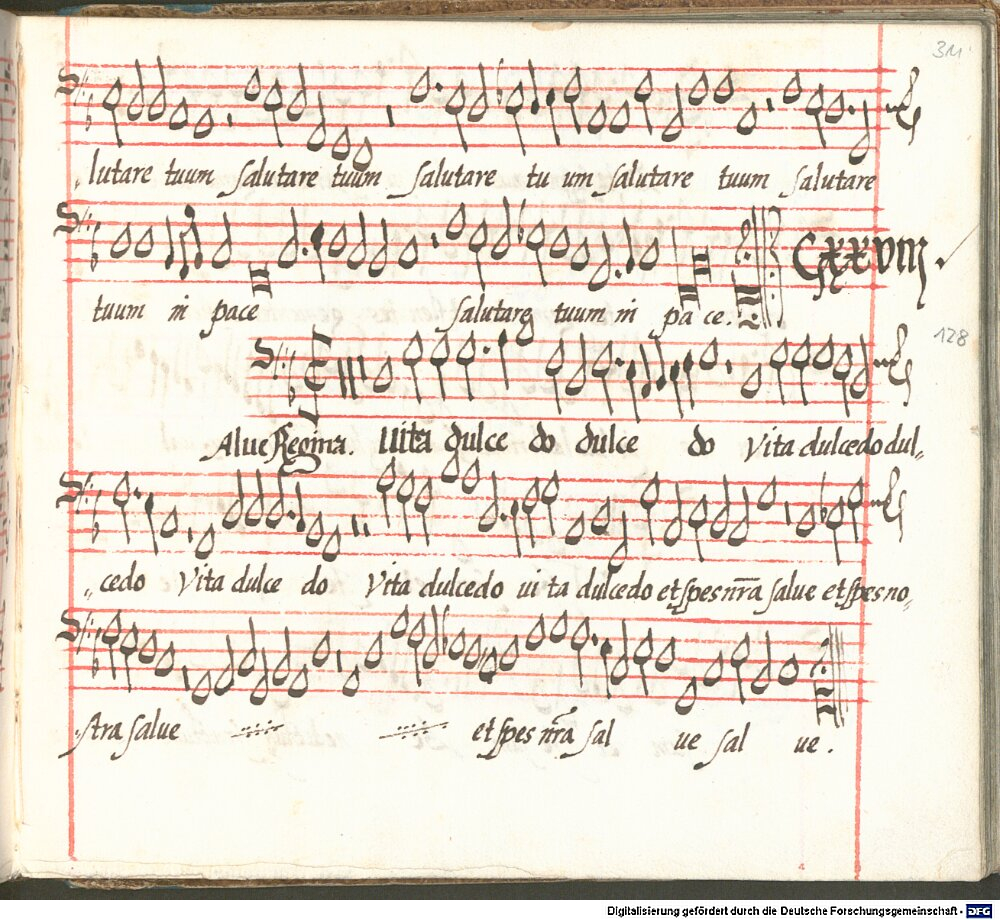 311
lutare tuum salutare tuum salutare tu um salutare tuum salutare
tuum in pace salutare tuum in pa ce.
CXXVIII
128
Alue Regina. Uita dulce do dulce do Vita dulcedo dul„
„cedo Vita dulce do Vita dulcedo ui ta dulcedo et spes nr̃a salue et spes no„
stra salue et spes nr̃a sal ue sal ue.
Digitalisierung gefördert durch die Deutsche Forschungsgemeinschaft - DFG